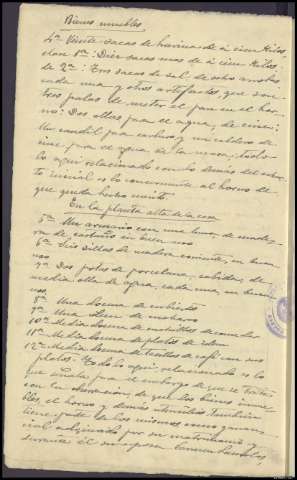 Bienes muebles
4º Veinte sacas de harina de á cien Kilos,
clase 1ª: Diez sacas mas de á cien Kilos:
de 2ª: Tres sacas de sal de ocho arrobas
cada una y otros artefactos, que son:
tres palas de meter el pan en el hor-
no: Dos ollas para el agua, de cinc:
Un candil para carburo y un caldero de
cinc para el agua de la masa. Todo
lo aqui relacionado con lo demás del
inicial es lo concerniente al horno de
que queda hecho mérito.
En la planta alta de la casa
5º Un armario con una luna, de made-
ra de castaño en buen uso
6º Seis sillas de madera corriente, en buen
uso
7º Dos potes de porcelana, cabidas, de
media olla de agua, cada una, en buen
uso
8º Una docena de cubiertos
9º Una idem de
10º Media docena de cuchillos de
11º Media docena de platos de idem
12º Media docena de tacillas de café con sus
platos. Todo lo aqui relacionado es lo
que señala para el embargo de que se trata
con la observación, de que los bienes inmue-
bles, el horno y demás utensilios tambien
tiene parte de los mismos como ganan-
cial adquirido por su matrimonio y
durante él su esposa Carmen